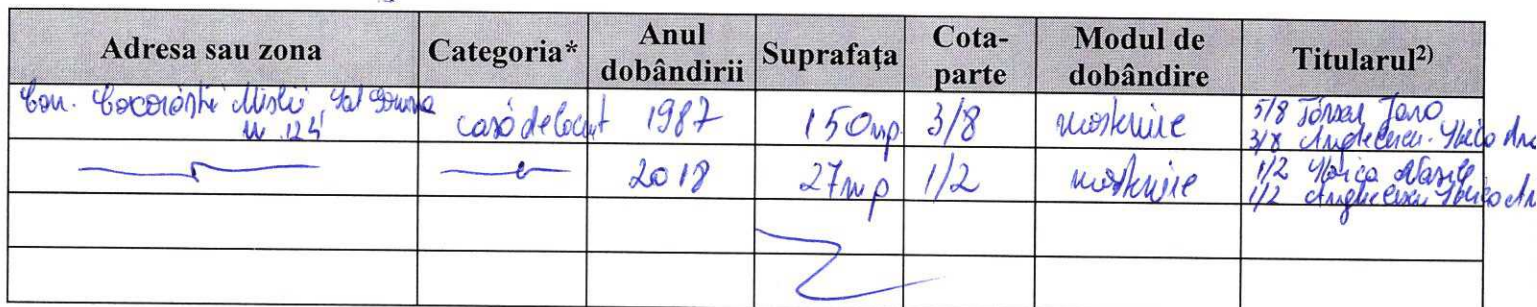 Adresa sau zona Categoria* Anul dobândirii Suprafaţa Cota-parte Modul de dobândire Titularul2)
Com. Cocorăștii Mislii, Sat Goruna casă de locuit 1987 150mp 3/8 moștenire 5/8
nr. 124 3/8 Anghelescu
2018 27mp 1/2 moștenire 1/2 Vasile
1/2 Anghelescu